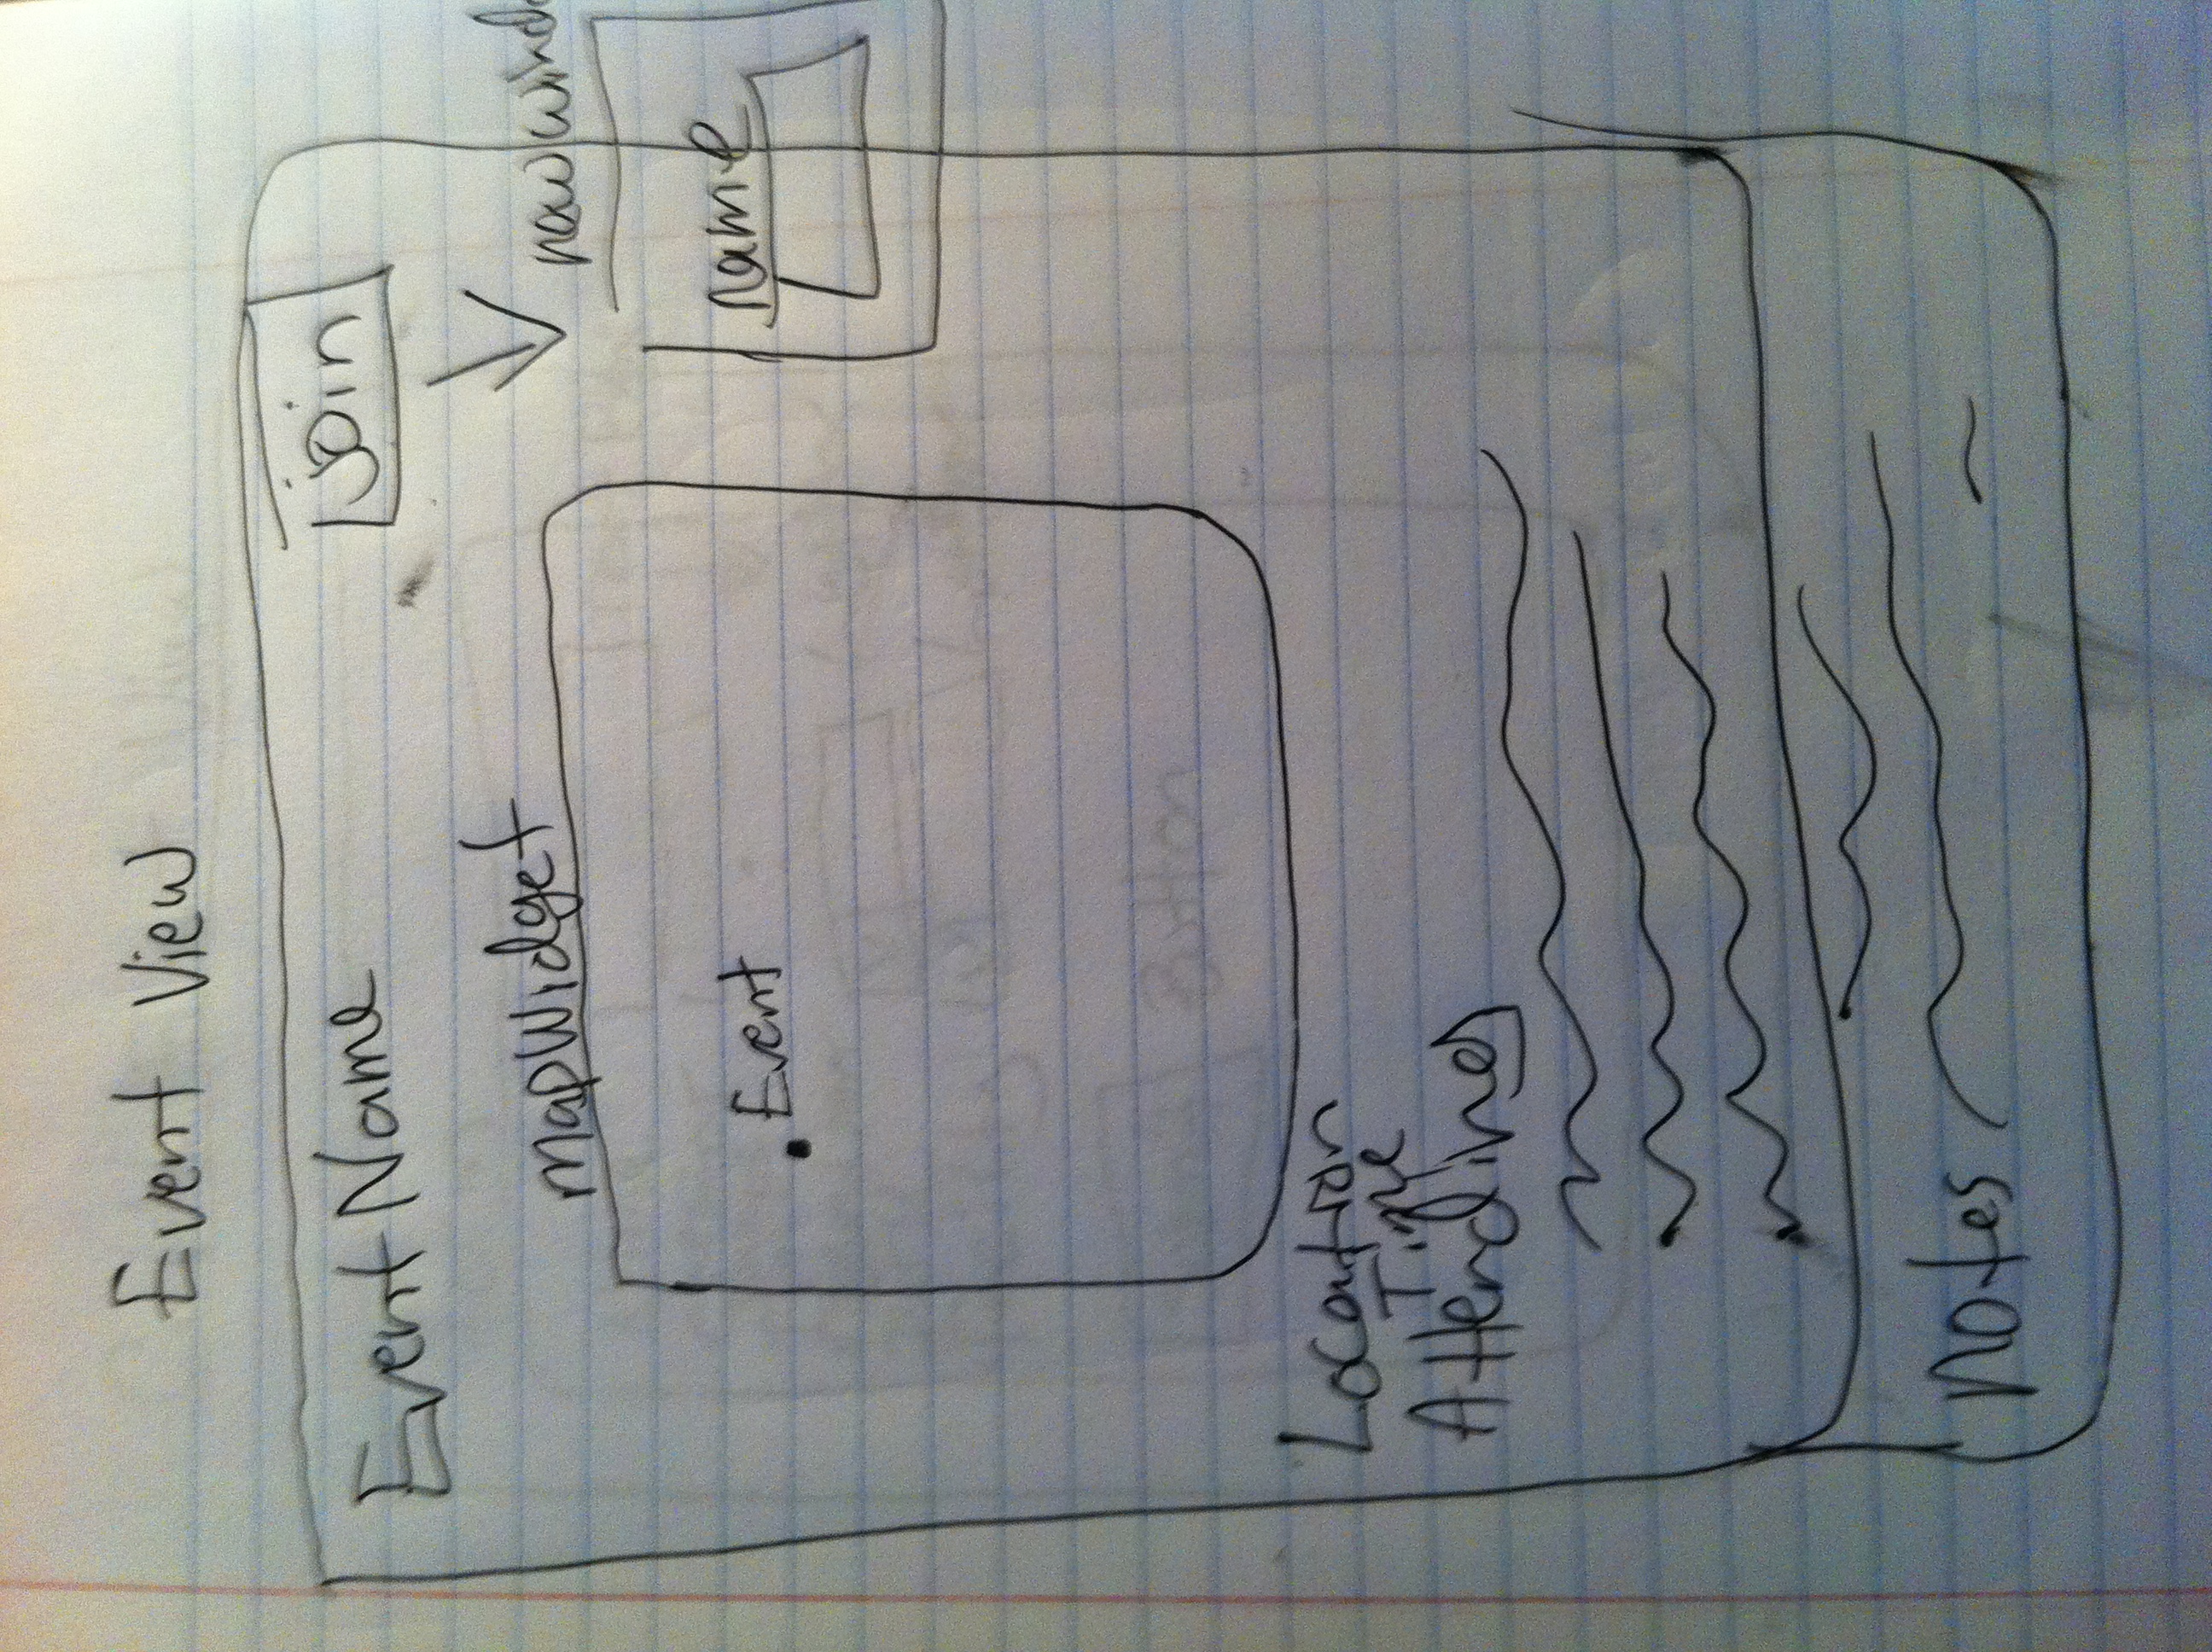 Event View
Event Name
join
map Widget
new
name
Event
Location
Time
Attending
Notes